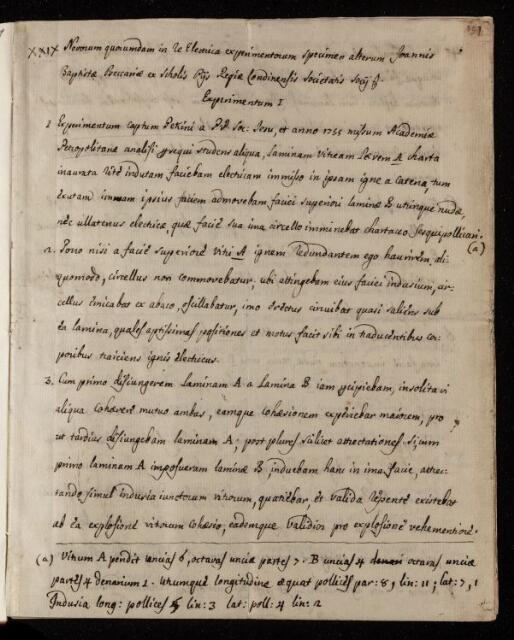 XXIX Novorum quorumdam in re Electrica experimentorum specimen alterum Joannis
Baptistæ Beccariæ ex Scholis Pijs Regiæ Londinensis Societatis Socij
Experimentum I
1 Experimentum captum Pekini a PP. Soc: Jesu, et anno 1755 missum Academiæ
Petropolitanæ analisi persequi studens aliqua, laminam vitream lævem A charta
inaurata ritè indutam faciebam electricam immisso in ipsam igne a catena, tum
exutam imam ipsius faciem admovebam faciei superiori laminæ B utrinque nudæ,
nec ullatenus electricæ, quæ faciè sua ima circello imminebat chartaceo sesquipollicari.
(a)
2. Porro nisi a faciè superiorè vitri A ignem redundantem ego haurirem, ali-
quomodo, circellus non commovebatur. ubi attingebam eius faciei indusium, cir-
cellus emicabat ex abaco, oscillabatur, imo erectus circuibat quasi saliens sub
ea lamina, quales aptissimas positiones et motus facit sibi in traducentibus cor-
poribus traiciens ignis electricus.
3. Cum primo disiungerem laminam A a lamina B iam percipiebam, insolita vi
aliqua cohærere mutuo ambas, eamque cohæsionem experiebar maiorem, pro
ut tardius disiungebam laminam A, post plures scilicet attrectationes. Si, cum
primo laminam A imposueram laminæ B induebam hanc in ima facie, attrec-
tando simul indusia iunctorum vitrorum, quatiebar, et valida repente existebat
ab ea explosionè vitrorum cohæsio, eademque validior pro explosionè vehementiorè.
(a) Vitrum A pendit uncias 6, octavas unciæ partes 7. B uncias 4 octavas unciæ
partes 4 denarium 1. utrumque longitudine æquat pollices par: 8, lin: 11; lat: 7, 1
Indusia long: pollices 5 lin: 3 lat: poll: 4 lin: 2